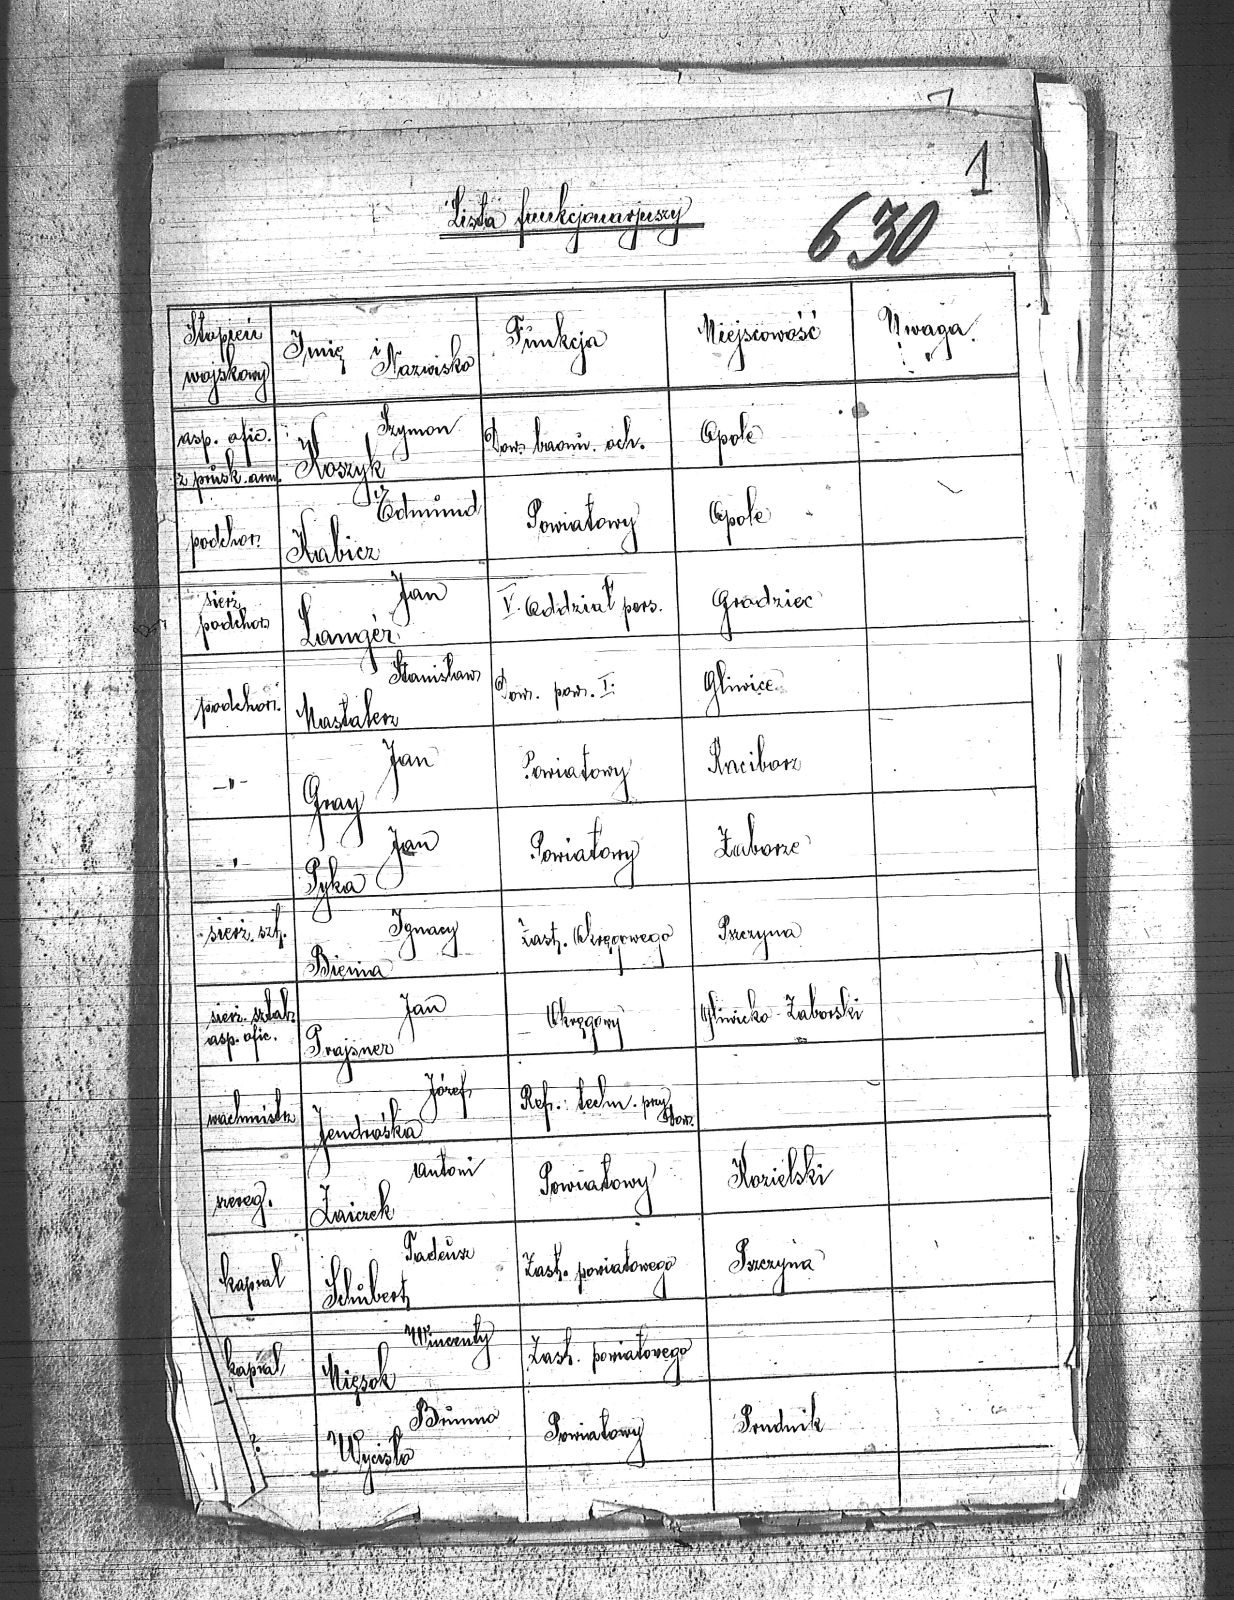 1
Lista funkcjonarjuszy
630
Stopień wojskowy Imię i Nazwisko Funkcja Miejscowość Uwaga.
asp. ofic. z prusk. arm. Szymon Koszyk Dow. baonu. och. Opole
podchor. Edmund Kabicz Powiatowy Opole
sierż. podchor. Jan Langer V. Oddział pers. Grodziec
podchor. Stanisław Mastalerz Dow. pow. I. Gliwice
-"- Jan Gray Powiatowy Racibórz
-"- Jan Pyka Powiatowy Zaborze
sierż. szt. Ignacy Bienia Zast. Okręgowego Pszczyna
sierż. sztab. asp. ofic. Jan Prajsner Okręgowy Gliwicko-Zaborski
wachmistrz Józef Jendrośka Ref. techn. przy Dow.
szereg. Antoni Zaiczek Powiatowy Kozielski
kapral Tadeusz Schubert Zast. powiatowego Pszczyna
kapral Wincenty Mięsok Zast. powiatowego
? Brunno Wycisło Powiatowy Prudnik